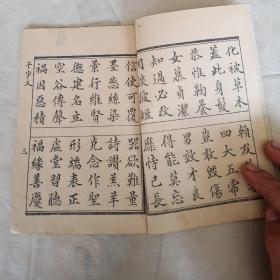 化被草木 賴及
蓋此身髮 四大五常
恭惟鞠養 豈敢毀傷
女慕貞潔 男效才良
知過必改 得能莫忘
談彼短 靡恃己長
信使可覆 器欲難量
墨悲絲染 詩讚羔羊
景行維賢 克念作聖
德建名立 形端表正
空谷傳聲 虛堂習聽
禍因惡積 福緣善慶
千字文 三